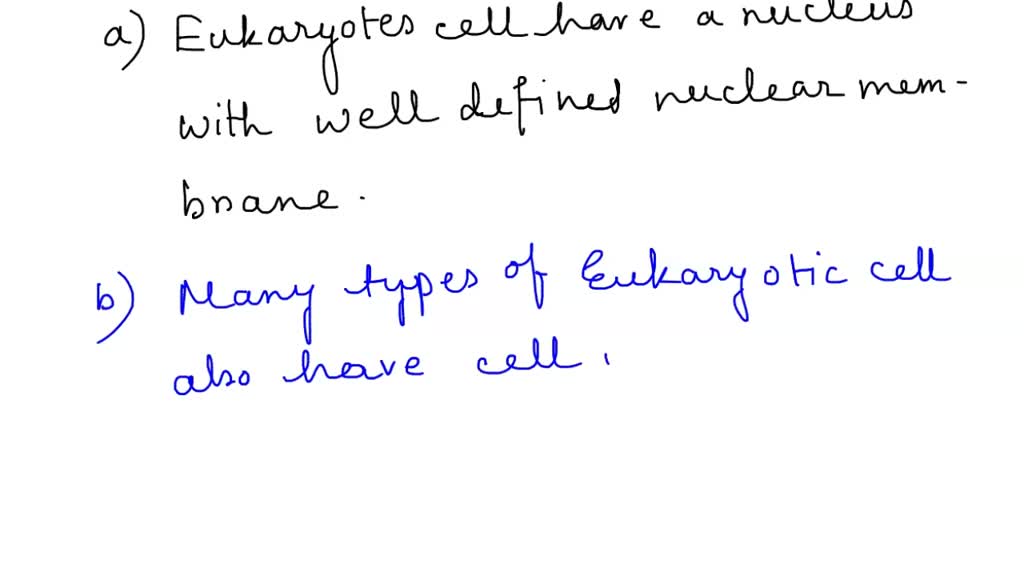 a) Eukaryotes cell have a nucleus
with well defined nuclear mem-
brane.
b) Many types of Eukaryotic cell
also have cell